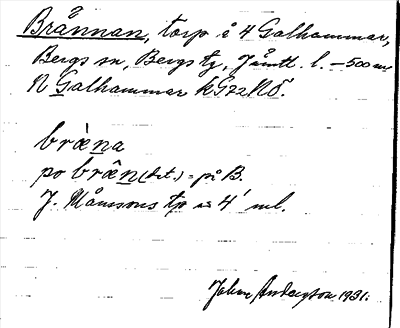 Brännan, torp å 4 Galhammar,
Bergs sn, Bergs tg, Jämtl. l. – 500 m
N Galhammar kG22NÖ.
brὲna
po brên (det.) = på B.
J. Månssons tp å 4' ml.
Johan Anderzon 1931.